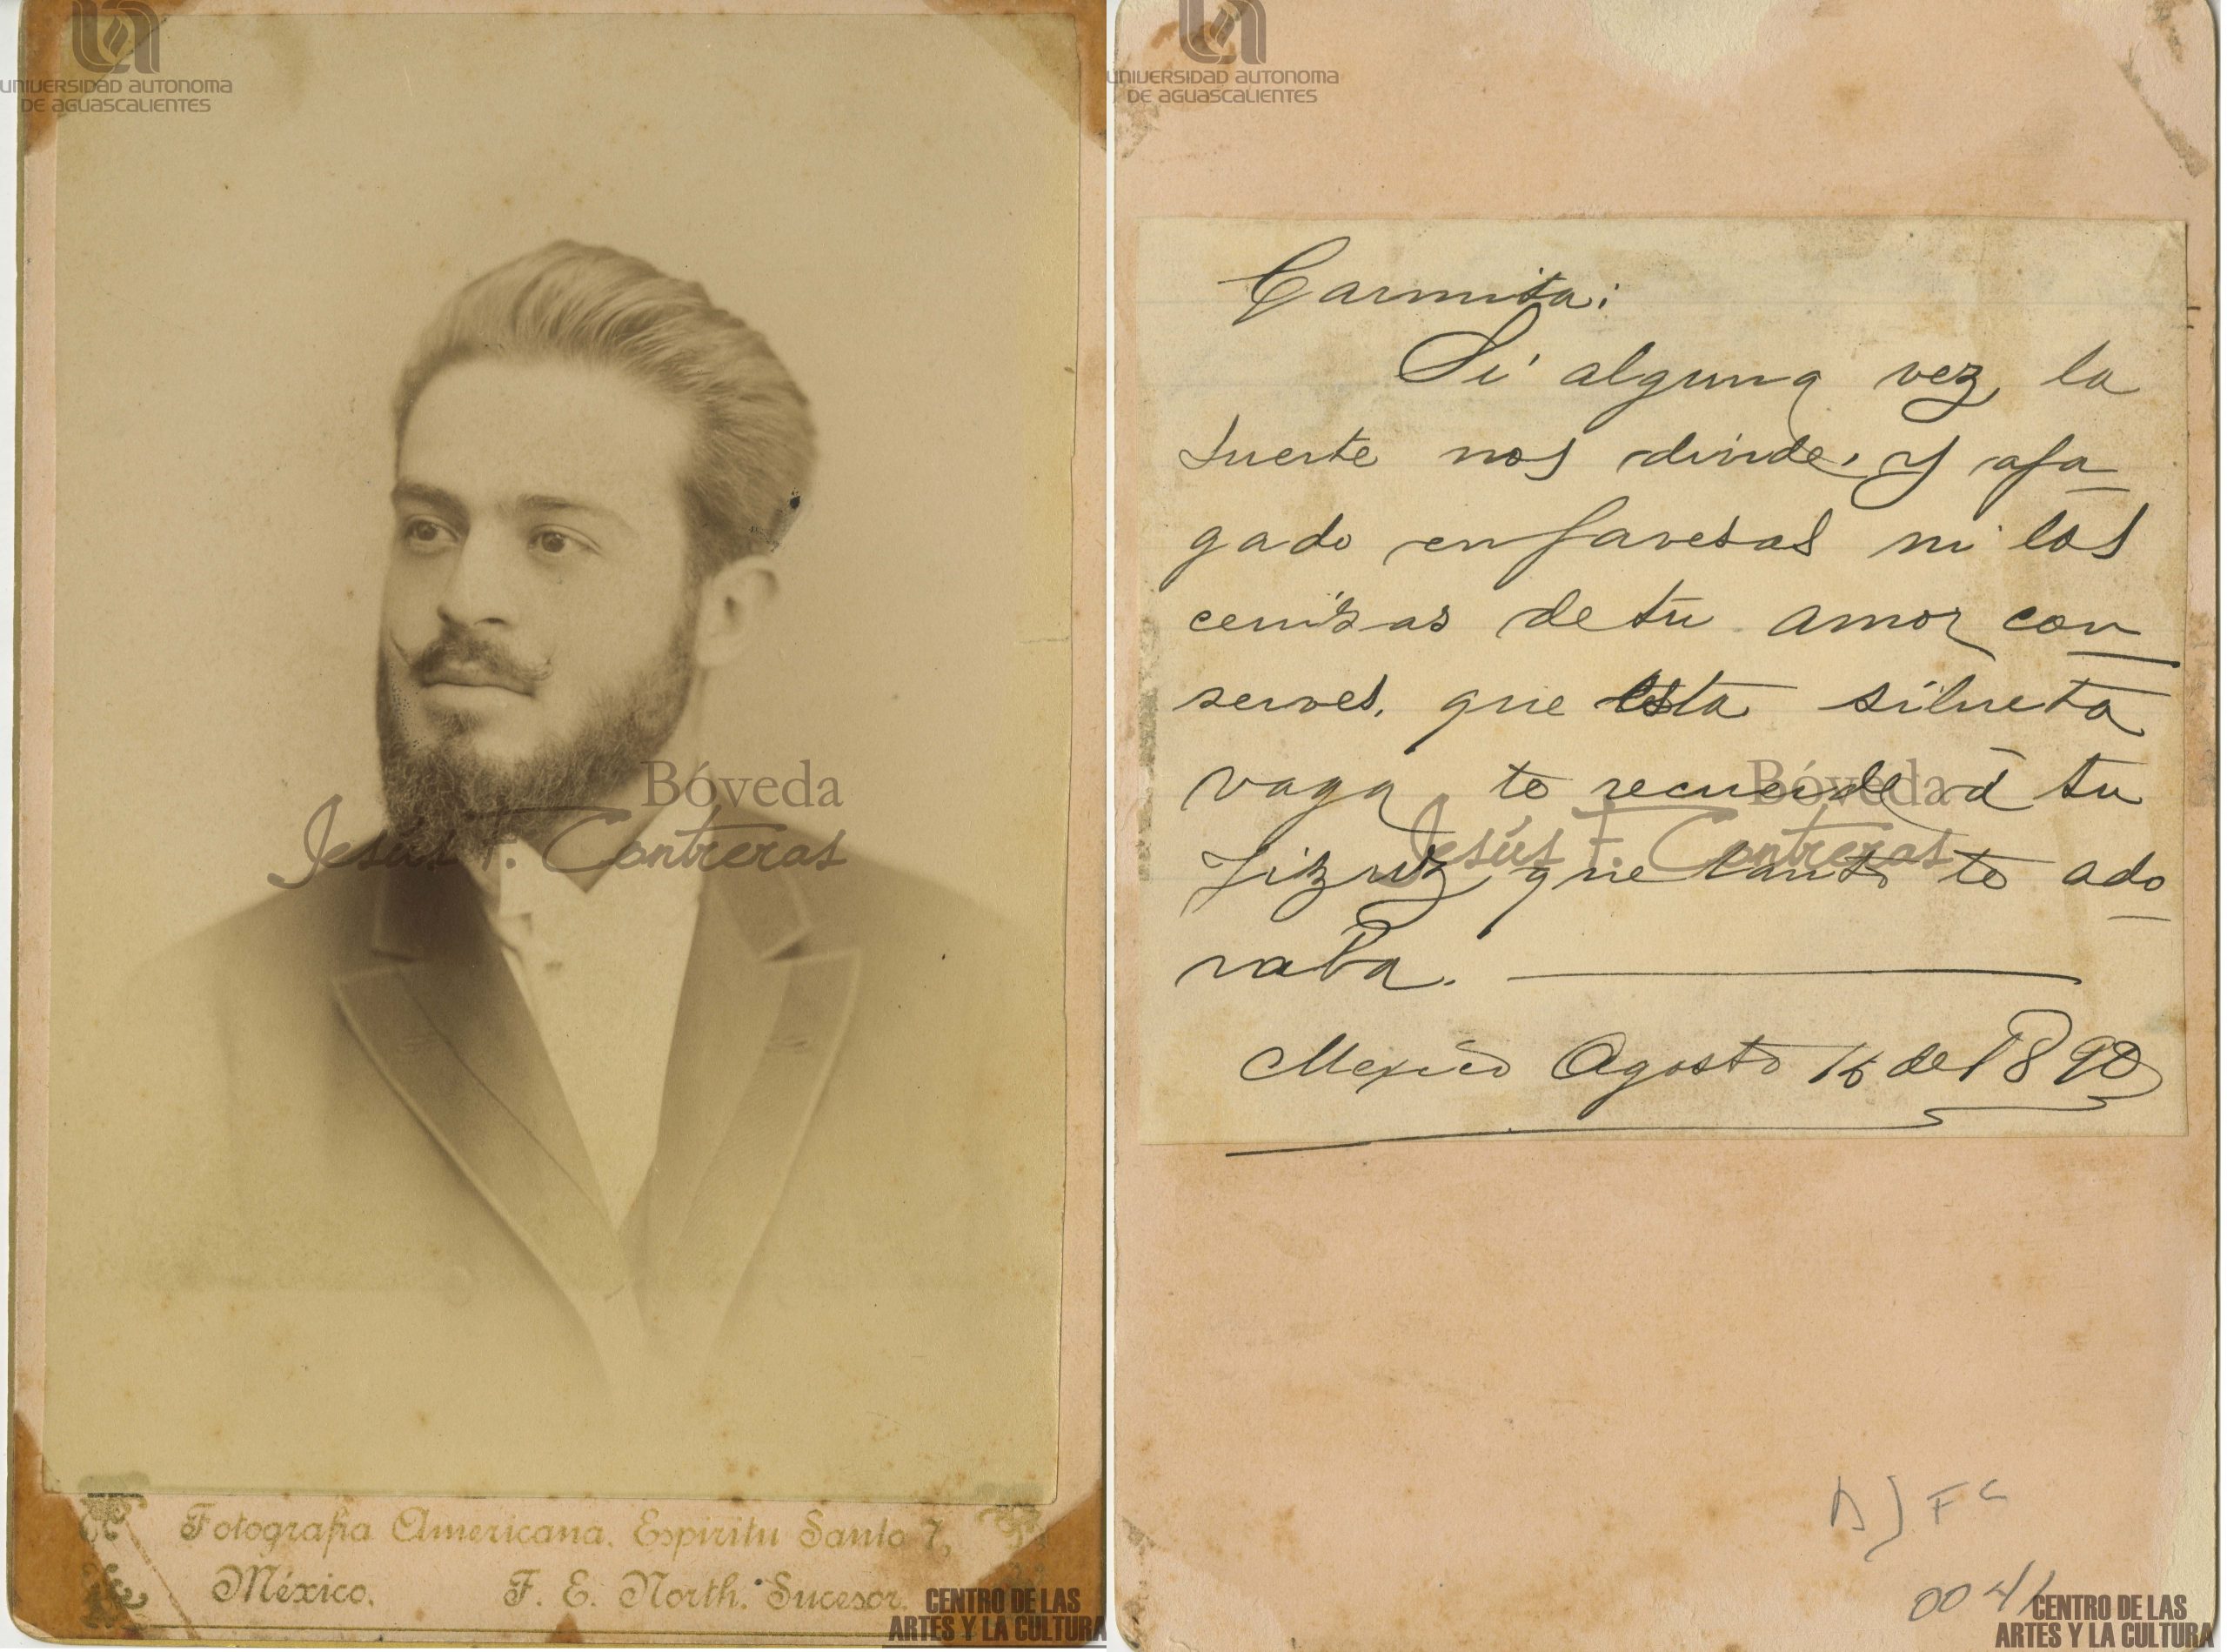 UNIVERSIDAD AUTONOMA
DE AGUASCALIENTES
Bóveda
Jesús F. Contreras
Fotografia Americana. Espiritu Santo 7,
México. F. E. North. Sucesor.
CENTRO DE LAS
ARTES Y LA CULTURA
UNIVERSIDAD AUTONOMA
DE AGUASCALIENTES
Carmita:
Si alguna vez, la
suerte nos divide, y apa-
gado en pavesas ni las
cenizas de tu amor con-
serves, que esta silueta
vaga te recuerde á tu
que tanto te ado-
raba.
Mexico Agosto 16 de 1890
Bóveda
Jesús F. Contreras
AJFC
0041
CENTRO DE LAS
ARTES Y LA CULTURA